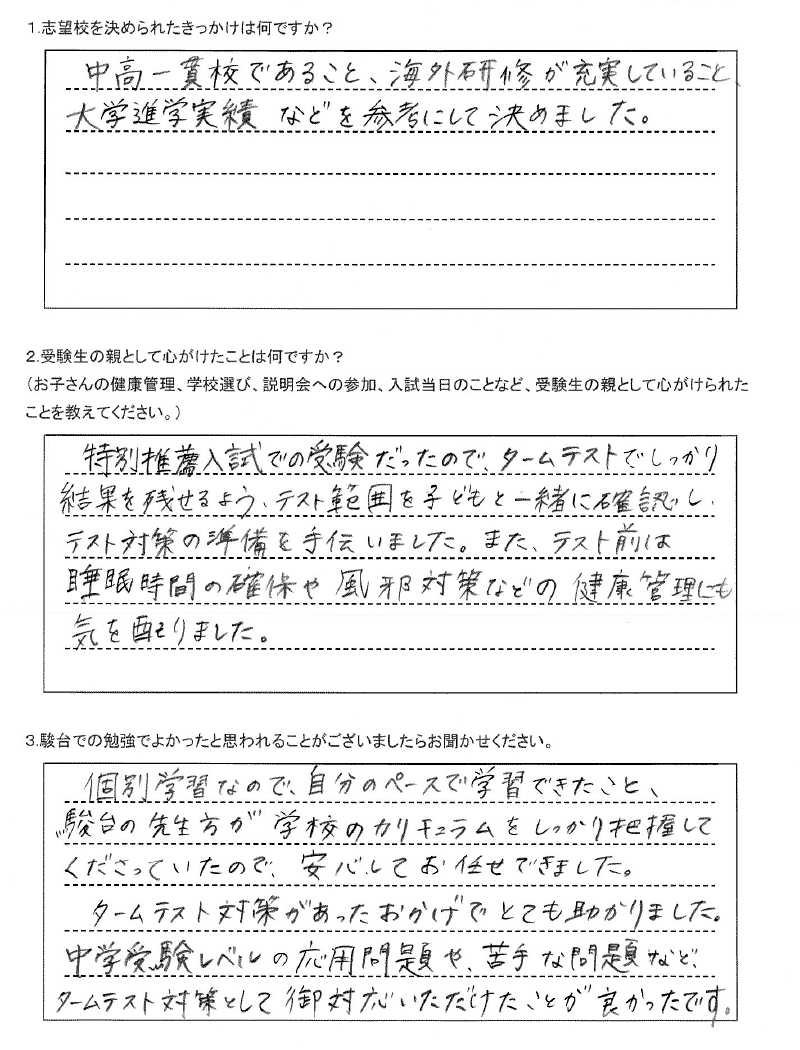 1.志望校を決められたきっかけは何ですか？
中高一貫校であること、海外研修が充実していること、
大学進学実績 などを参考にして決めました。
2.受験生の親として心がけたことは何ですか？
（お子さんの健康管理、学校選び、説明会への参加、入試当日のことなど、受験生の親として心がけられた
ことを教えてください。）
特別推薦入試での受験だったので、タームテストでしっかり
結果を残せるよう、テスト範囲を子どもと一緒に確認し、
テスト対策の準備を手伝いました。また、テスト前は
睡眠時間の確保や風邪対策などの健康管理にも
気を配りました。
3.駿台での勉強でよかったと思われることがございましたらお聞かせください。
個別学習なので、自分のペースで学習できたこと、
駿台の先生方が学校のカリキュラムをしっかり把握して
くださっていたので、安心してお任せできました。
タームテスト対策があったおかげでとても助かりました。
中学受験レベルの応用問題や、苦手な問題など、
タームテスト対策として御対応いただけたことが良かったです。